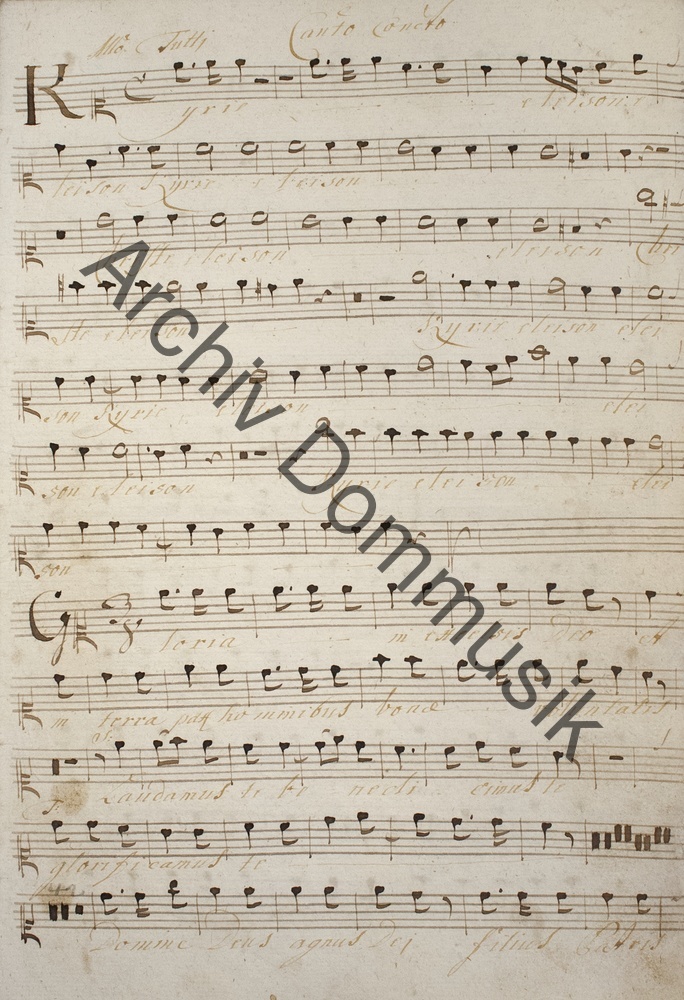 Canto Conc:to
All:o C Tutti
Kyrie eleison e
leison Kyrie e leison
eleison eleison Chri
ste eleison Kyrie eleison elei
son Kyrie eleison elei
son eleison Kyrie eleison elei
son
Gloria in excelsis Deo et
in terra pax hominibus bonæ voluntatis
Laudamus te be nedi cimus te
T:
glorificamus te
Domine Deus agnus Dei filius Patris
Archiv Dommusik